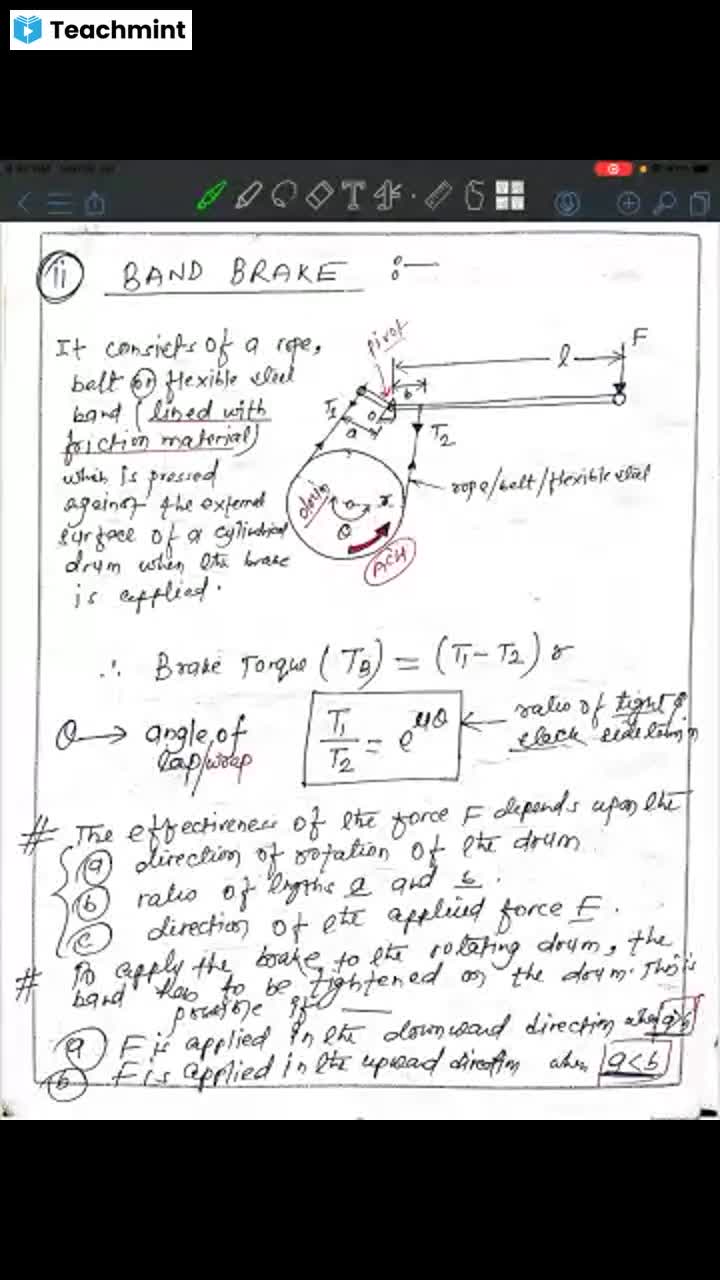 Teachmint
ii BAND BRAKE :—
It consists of a rope,
belt or flexible steel
band (lined with
friction material)
which is pressed
against the external
surface of a cylindrical
drum when the brake
is applied.
pivot
l
F
b
T1
O
a
T2
rope/belt/flexible steel
drum
r
θ
ACW
∴ Brake Torque (TB) = (T1 - T2) r
θ → angle of
lap/wrap
T1/T2 = e^μθ
ratio of tight &
slack side
# The effectiveness of the force F depends upon the
a direction of rotation of the drum
b ratio of lengths a and b.
c direction of the applied force F.
# To apply the brake to the rotating drum, the
band has to be tightened on the drum. This is
possible if —
a F is applied in the downward direction when a>b
b F is applied in the upward direction when a<b